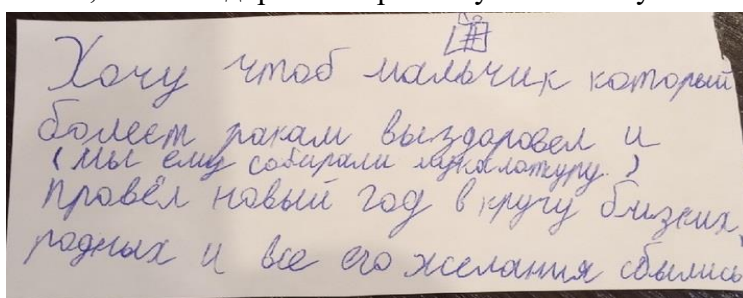 Хочу чтоб мальчик который
болеет ракам выздаровел и
(мы ему собирали мукалатуру.)
провёл новый год в кругу близких,
родных и все его желания сбылись